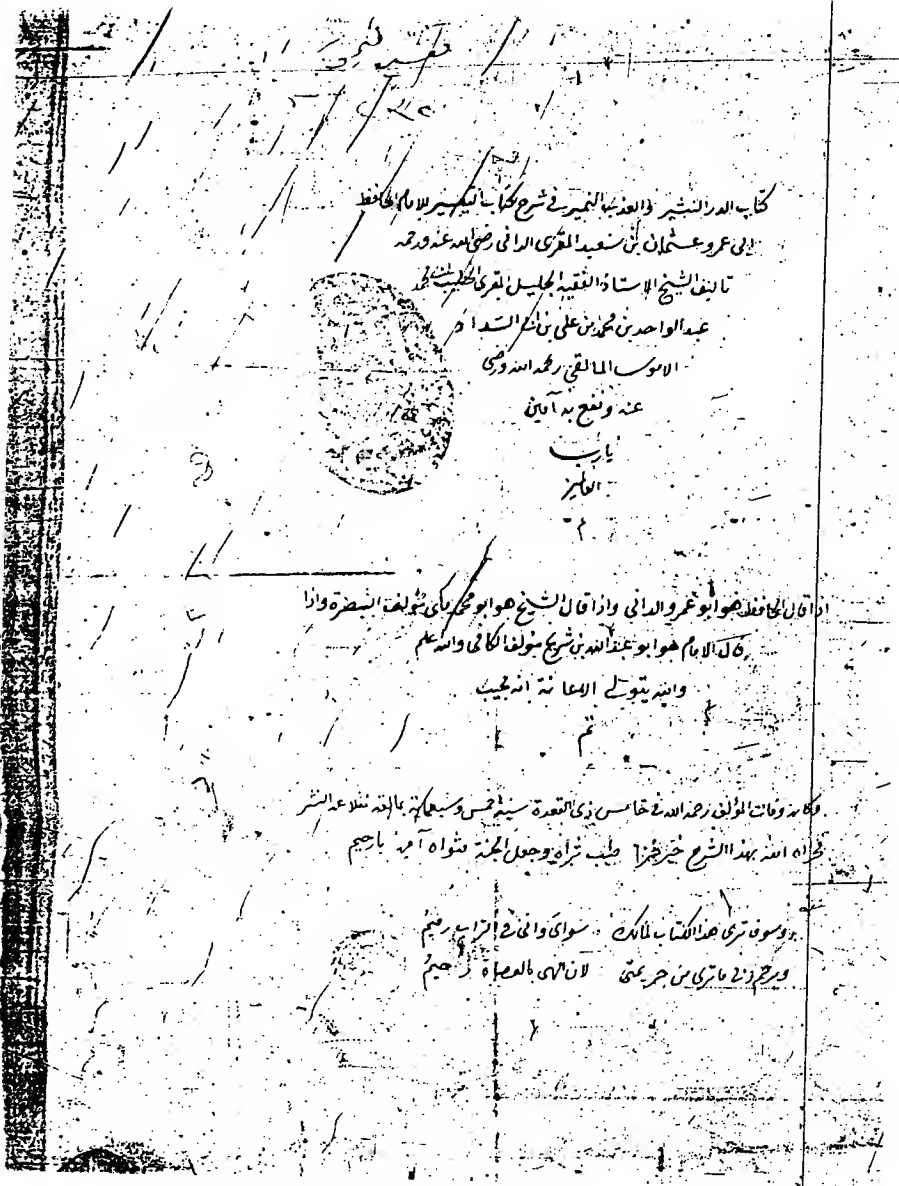 كتاب الدر النثير والعذب النمير في شرح كتاب التيسير للامام الحافظ
ابي عمرو عثمان بن سعيد المقرى الدانى رضى الله عنه ورحمه
تاليف الشيخ الاستاذ الفقيه الجليل المقرى الخطيب
عبد الواحد بن محمد بن على بن ابى السداد
الاموى المالقى رحمه الله ورضى
عنه ونفع به آمين
يارب
العالمين
م
اذا قال الحافظ هو ابو عمرو الدانى واذا قال الشيخ هو ابو محمد مكى مؤلف التبصرة واذا
قال الامام هو ابو عبد الله بن شريح مؤلف الكافى والله علم
والله يتولى الاعانة انه مجيب
تم
وكان وفات المؤلف رحمه الله فى خامس ذى القعدة سنة خمس وسبعمائة بمالقه نقلا عن النشر
فجزاه الله بهذا الشرح خير طيب ثراه وجعل الجنة مثواه آمين يا رحيم
وسوف ترى هذا الكتاب لمالك سواى وانى فى التراب رميم
ما ترى من جريمتى لان الهى بالعصاة رحيم